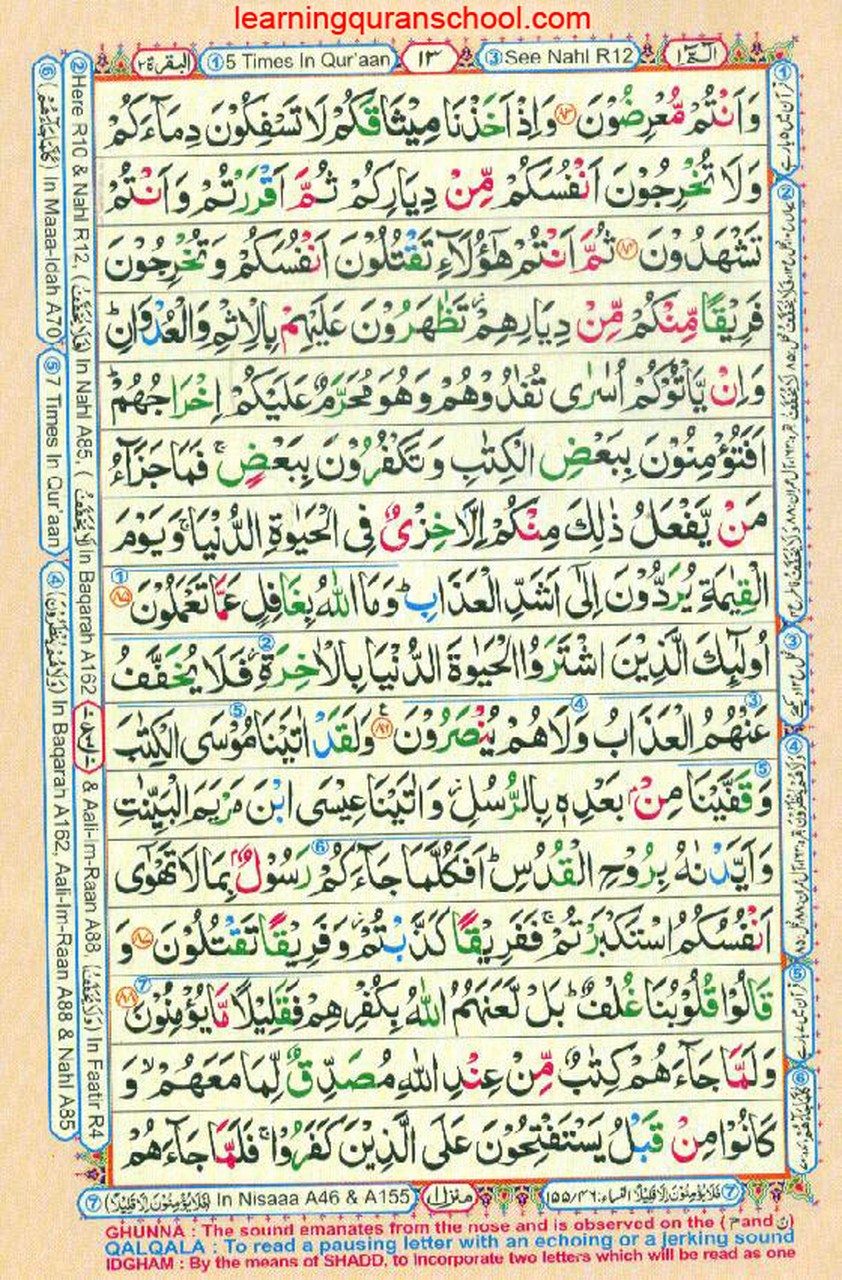 learningquranschool.com
البقرة ٢
① 5 Times In Qur'aan
١٣
③ See Nahl R12
الٓمّٓ ١
وَاَنْتُمْ مُّعْرِضُوْنَ ﴿٨٣﴾ وَاِذْ اَخَذْنَا مِيْثَاقَكُمْ لَا تَسْفِكُوْنَ دِمَآءَكُمْ
وَلَا تُخْرِجُوْنَ اَنْفُسَكُمْ مِّنْ دِيَارِكُمْ ثُمَّ اَقْرَرْتُمْ وَاَنْتُمْ
تَشْهَدُوْنَ ﴿٨٤﴾ ثُمَّ اَنْتُمْ هٰٓؤُلَآءِ تَقْتُلُوْنَ اَنْفُسَكُمْ وَتُخْرِجُوْنَ
فَرِيْقًا مِّنْكُمْ مِّنْ دِيَارِهِمْ تَظٰهَرُوْنَ عَلَيْهِمْ بِالْاِثْمِ وَالْعُدْوَانِ ؕ
وَاِنْ يَّاْتُوْكُمْ اُسٰرٰى تُفٰدُوْهُمْ وَهُوَ مُحَرَّمٌ عَلَيْكُمْ اِخْرَاجُهُمْ ؕ
اَفَتُؤْمِنُوْنَ بِبَعْضِ الْكِتٰبِ وَتَكْفُرُوْنَ بِبَعْضٍ ۚ فَمَا جَزَآءُ
مَنْ يَّفْعَلُ ذٰلِكَ مِنْكُمْ اِلَّا خِزْىٌ فِى الْحَيٰوةِ الدُّنْيَا ۚ وَيَوْمَ
الْقِيٰمَةِ يُرَدُّوْنَ اِلٰٓى اَشَدِّ الْعَذَابِ ؕ وَمَا اللّٰهُ بِغَافِلٍ عَمَّا تَعْمَلُوْنَ ① ﴿٨٥﴾
اُولٰٓئِكَ الَّذِيْنَ اشْتَرَوُا الْحَيٰوةَ الدُّنْيَا بِالْاٰخِرَةِ ② فَلَا يُخَفَّفُ
عَنْهُمُ الْعَذَابُ ③ وَلَا هُمْ يُنْصَرُوْنَ ④ ﴿٨٦﴾ وَلَقَدْ اٰتَيْنَا مُوْسَى الْكِتٰبَ ⑤
وَقَفَّيْنَا مِنْۢ بَعْدِهٖ بِالرُّسُلِ وَاٰتَيْنَا عِيْسَى ابْنَ مَرْيَمَ الْبَيِّنٰتِ ⑤
وَاَيَّدْنٰهُ بِرُوْحِ الْقُدُسِ ؕ اَفَكُلَّمَا جَآءَكُمْ رَسُوْلٌۢ بِمَا لَا تَهْوٰٓى ⑥
اَنْفُسُكُمُ اسْتَكْبَرْتُمْ ۚ فَفَرِيْقًا كَذَّبْتُمْ وَفَرِيْقًا تَقْتُلُوْنَ ﴿٨٧﴾ وَ
قَالُوْا قُلُوْبُنَا غُلْفٌ ؕ بَلْ لَّعَنَهُمُ اللّٰهُ بِكُفْرِهِمْ فَقَلِيْلًا مَّا يُؤْمِنُوْنَ ⑦ ﴿٨٨﴾
وَلَمَّا جَآءَهُمْ كِتٰبٌ مِّنْ عِنْدِ اللّٰهِ مُصَدِّقٌ لِّمَا مَعَهُمْ ۙ وَ
كَانُوْا مِنْ قَبْلُ يَسْتَفْتِحُوْنَ عَلَى الَّذِيْنَ كَفَرُوْا ۚ فَلَمَّا جَآءَهُمْ
② Here R10 & Nahl R12, (فَلَا يُخَفَّفُ) In Nahl A85, (لَا يُخَفَّفُ) In Baqarah A162 & Aali-Im-Raan A88, (وَلَا يُخَفَّفُ) In Faatir R4
⑥ (كُلَّمَا جَآءَهُمْ) In Maaa-Idah A70
⑤ 7 Times In Qur'aan
④ (وَلَا هُمْ يُنْظَرُوْنَ) In Baqarah A162, Aali-Im-Raan A88 & Nahl A85
⑦ (فَلَا يُؤْمِنُوْنَ اِلَّا قَلِيْلًا) In Nisaaa A46 & A155
منزل ١
⑦ فَلَا يُؤْمِنُوْنَ اِلَّا قَلِيْلًا النساء: ٤٦/١٥٥
GHUNNA : The sound emanates from the nose and is observed on the (م and ن)
QALQALA : To read a pausing letter with an echoing or a jerking sound
IDGHAM : By the means of SHADD, to incorporate two letters which will be read as one